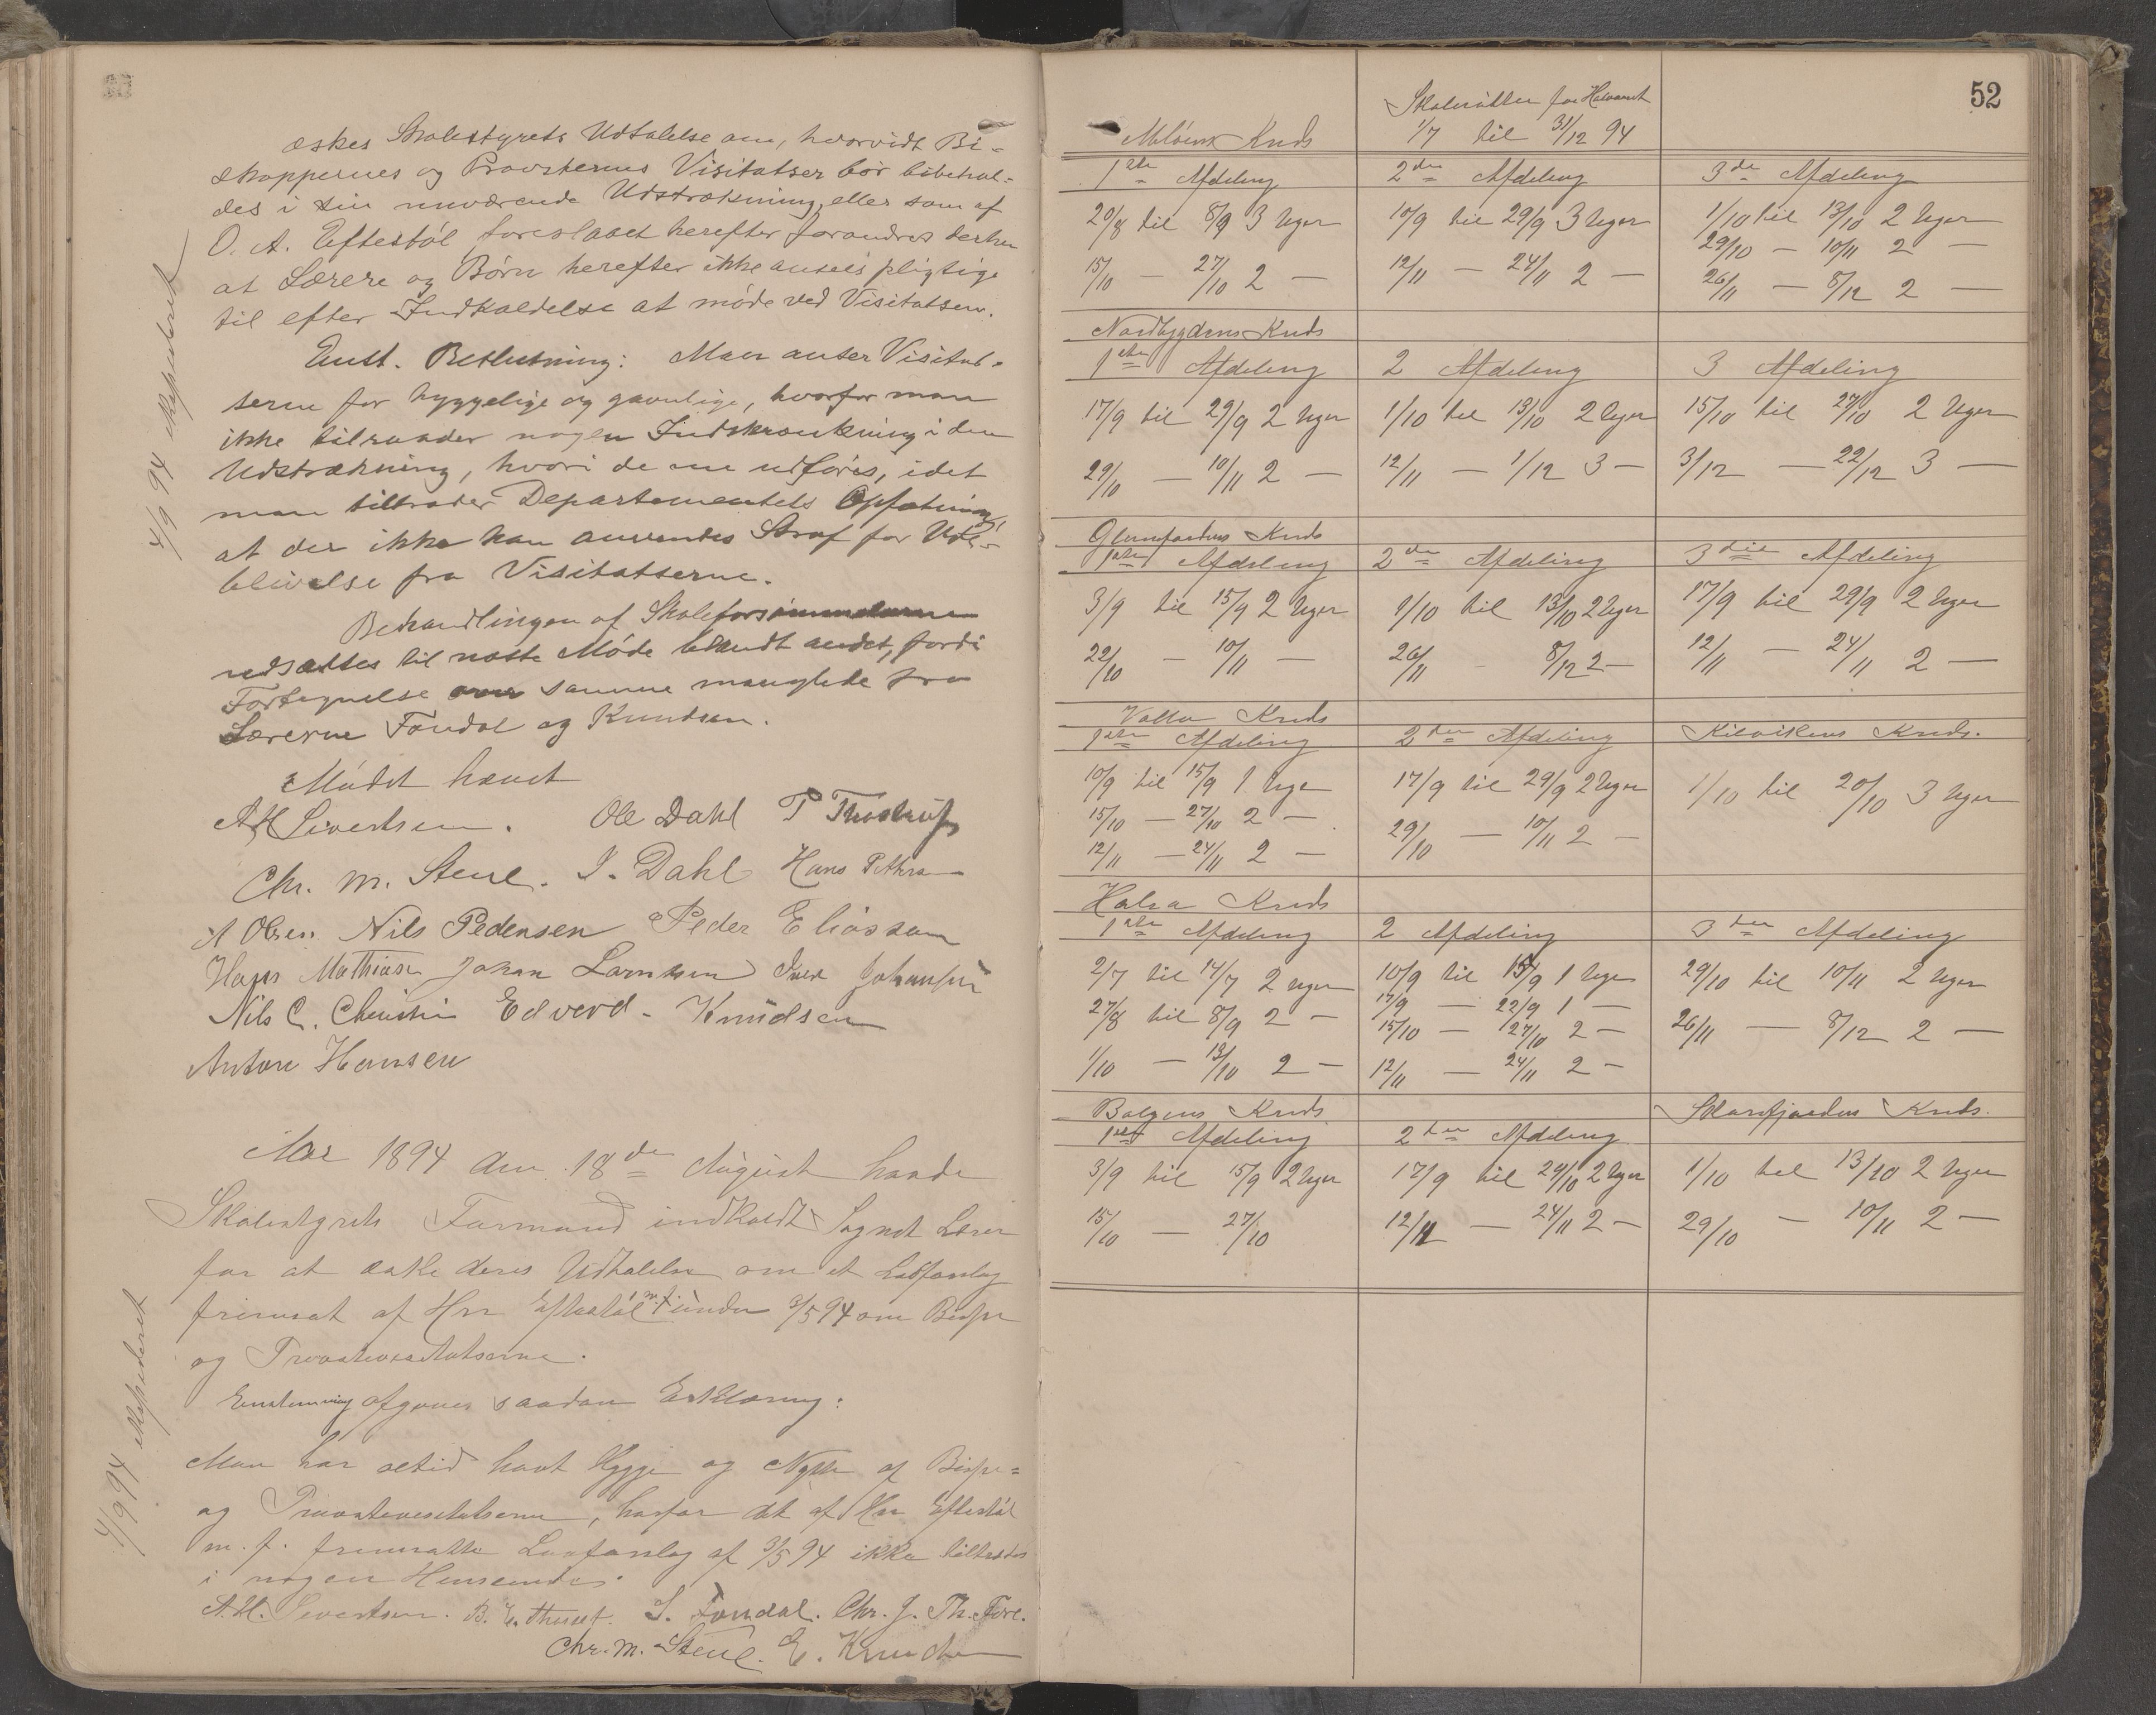 æskes Skolestyrets Udtalelse om, hvorvidt Bi-
skoppernes og Provsternes Visitatser bør bibehol-
des i sin nuværende Udstrækning, eller som af
O. A. Eftestøl foreslaaet herefter forandres derhen
at Lærere og Børn herefter ikke ansees pligtige
til efter Indkaldelse at møde ved Visitatsen.
Enst. Beslutning: Man anser Visitat-
serne for hyggelige og gavnlige, hvorfor man
ikke tilraader nogen Indskrænkning i den
Udstrækning, hvori de nu udføres, idet
man tiltræder Departementets Opfatning,
at der ikke kan anvendes Straf for Ude-
blivelse fra Visitatserne.
4/9 94 expederet
Behandlingen af Skoleforsømmelserne
udsættes til næste Møde blandt andet, fordi
Fortegnelse over samme manglede fra
Lærerne Fondal og Knudsen.
Mødet hævet
A H Sivertsen. Ole Dahl P
Chr. M. Stene. I. Dahl Hans
A Olsen Nils Pedersen Peder Eliassen
Hans Mathiasen Johan Iver Johansen
Nils C. Edverd. Knudsen
Anton Hansen
Aar 1894 den 18de August havde
Skolestyrets Formand indkaldt Sognets Lærere
for at æske deres Udtalelse om et Lovforslag
fremsat af Hrr Eftestøl m. f. under 3/5 94 om Bispe
og Provstevisitatserne.
Enstemmig afgaves saadan Erklæring:
Man har altid havt Hygge og Nytte af Bispe-
og Provstevisitatserne, hvorfor det af Hrr Eftestøl
m. f. fremsatte Lovforslag af 3/5 94 ikke tiltrædes
i nogen Henseende.
4/9 94 expederet
A. H. Sivertsen. B. E. S. Fondal. Chr. J. Th. Fore.
Chr. M. Stene. E. Knudsen
52
Skoleruter for Halvaaret
1/7 til 31/12 94
Meløens Krds
1ste Afdeling 2den Afdeling 3de Afdeling
20/8 til 8/9 3 Uger 10/9 til 29/9 3 Uger 1/10 til 13/10 2 Uger
29/10 — 10/11 2 —
15/10 — 27/10 2 — 12/11 — 24/11 2 — 26/11 — 8/12 2 —
Nordbygdens Krds
1ste Afdeling 2 Afdeling 3 Afdeling
17/9 til 29/9 2 Uger 1/10 til 13/10 2 Uger 15/10 til 27/10 2 Uger
29/10 — 10/11 2 — 12/11 — 1/12 3 — 3/12 — 22/12 3 —
Glomfjordens Krds
1ste Afdeling 2den Afdeling 3die Afdeling
3/9 til 15/9 2 Uger 1/10 til 13/10 2 Uger 17/9 til 29/9 2 Uger
22/10 — 10/11 — 26/11 - 8/12 2 — 12/11 — 24/11 2 —
Valla Krds
1ste Afdeling 2den Afdeling Kilvikens Krds.
10/9 til 15/9 1 Uge 17/9 til 29/9 2 Uger 1/10 til 20/10 3 Uger
15/10 — 27/10 2 —
29/10 — 10/11 2 —
12/11 — 24/11 2 —
Halsa Krds
1ste Afdeling 2 Afdeling 3die Afdeling
2/7 til 14/7 2 Uger 10/9 til 15/9 1 Uge 29/10 til 10/11 2 Uger
17/9 — 22/9 1 —
27/8 til 8/9 2 — 15/10 — 27/10 2 — 26/11 — 8/12 2 —
1/10 — 13/10 2 — 12/11 — 24/11 2 —
Bolgens Krds Skarsfjordens Krds.
1ste Afdeling 2den Afdeling
3/9 til 15/9 2 Uger 17/9 til 29/10 2 Uger 1/10 til 13/10 2 Uger
15/10 — 27/10 12/11 — 24/11 2 — 29/10 — 10/11 2 —